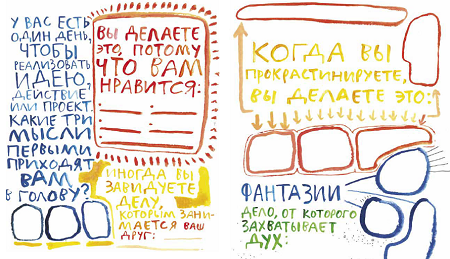 У ВАС ЕСТЬ
ОДИН ДЕНЬ,
ЧТОБЫ
РЕАЛИЗОВАТЬ
ИДЕЮ,
ДЕЙСТВИЕ
ИЛИ ПРОЕКТ.
КАКИЕ ТРИ
МЫСЛИ
ПЕРВЫМИ
ПРИХОДЯТ
ВАМ
В ГОЛОВУ?
ВЫ ДЕЛАЕТЕ
ЭТО, ПОТОМУ
ЧТО ВАМ
НРАВИТСЯ:
ИНОГДА ВЫ
ЗАВИДУЕТЕ
ДЕЛУ,
КОТОРЫМ ЗАНИ-
МАЕТСЯ ВАШ
ДРУГ:
КОГДА ВЫ
ПРОКРАСТИНИРУЕТЕ,
ВЫ ДЕЛАЕТЕ ЭТО:
ФАНТАЗИИ
ДЕЛО, ОТ КОТОРОГО
ЗАХВАТЫВАЕТ
ДУХ: